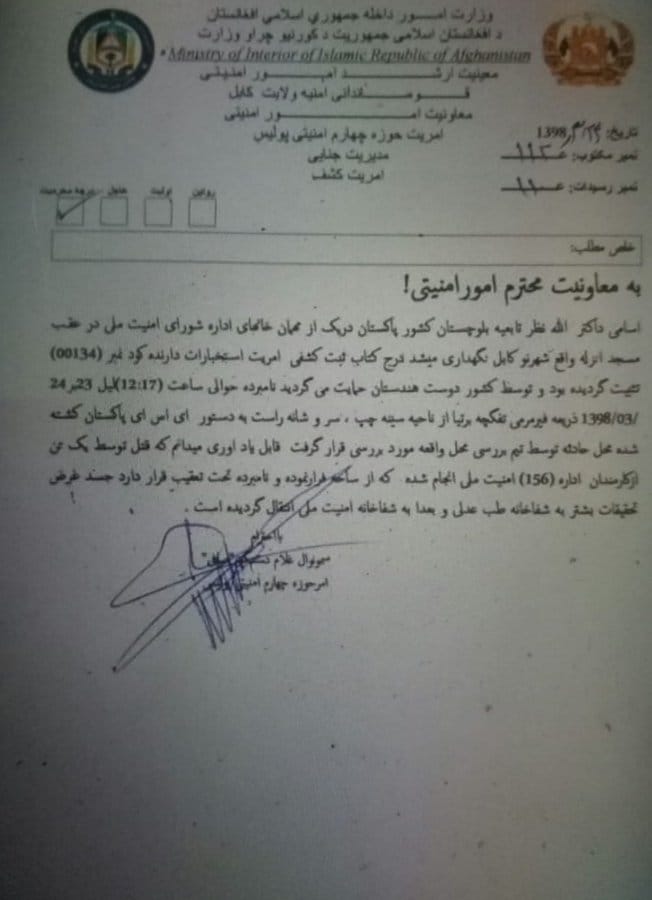 وزارت امـــور داخله جمهوري اسلامي افغانستان
د افغانستان اسلامی جمهوریت د کورنیو چرا و وزارت
Ministry of Interior of Islamic Republic of Afghanistan
معینیت ارشـــد امـــور امنیتـــی
قـــومـــاندانی امنیه ولایت کابل
معاونیت امـــور امنیتی
امریت حوزه چهارم امنیتی پولیس
مدیریت جنایی
امریت کشف
تاریخ: 1398
نمبر مکتوب:
نمبر رسیدات:
روتین
اولیت
عاجل
درجه محرمیت
خلص مطلب:
به معاونیت محترم امورامنیتی!
اسامی داکتر الله نظر تابعیه بلوچستان کشور پاکستان دریک از مهمان خانهای اداره شورای امنیت ملی در عقب
مسجد انزله واقع شهرنو کابل نگهداری میشد درج کتاب ثبت کشفی امریت استخبارات دارنده کود نمبر (00134)
تثبیت گردیده بود و توسط کشور دوست هندستان حمایت می گردید نامبرده حوالی ساعت (12:17)لیل 23بر24
/1398/03 ذریعه فیرمرمی تفنگچه برتیا از ناحیه سینه چپ ، سر و شانه راست به دستور ای اس ای پاکستان کشته
شده محل حادثه توسط تیم بررسی محل واقعه مورد بررسی قرار گرفت قابل یاد اوری میدانم که قتل توسط یک تن
ازکارمندان اداره (156) امنیت ملی انجام شده که از ساحه فرارنموده و نامبرده تحت تعقیب قرار دارد جسد غرض
تحقیقات بشتر به شفاخانه طب عدلی و بعدا به شفاخانه امنیت ملی انتقال گردیده است .
بااحترام
سمونوال غلام
امرحوزه چهارم امنیتی